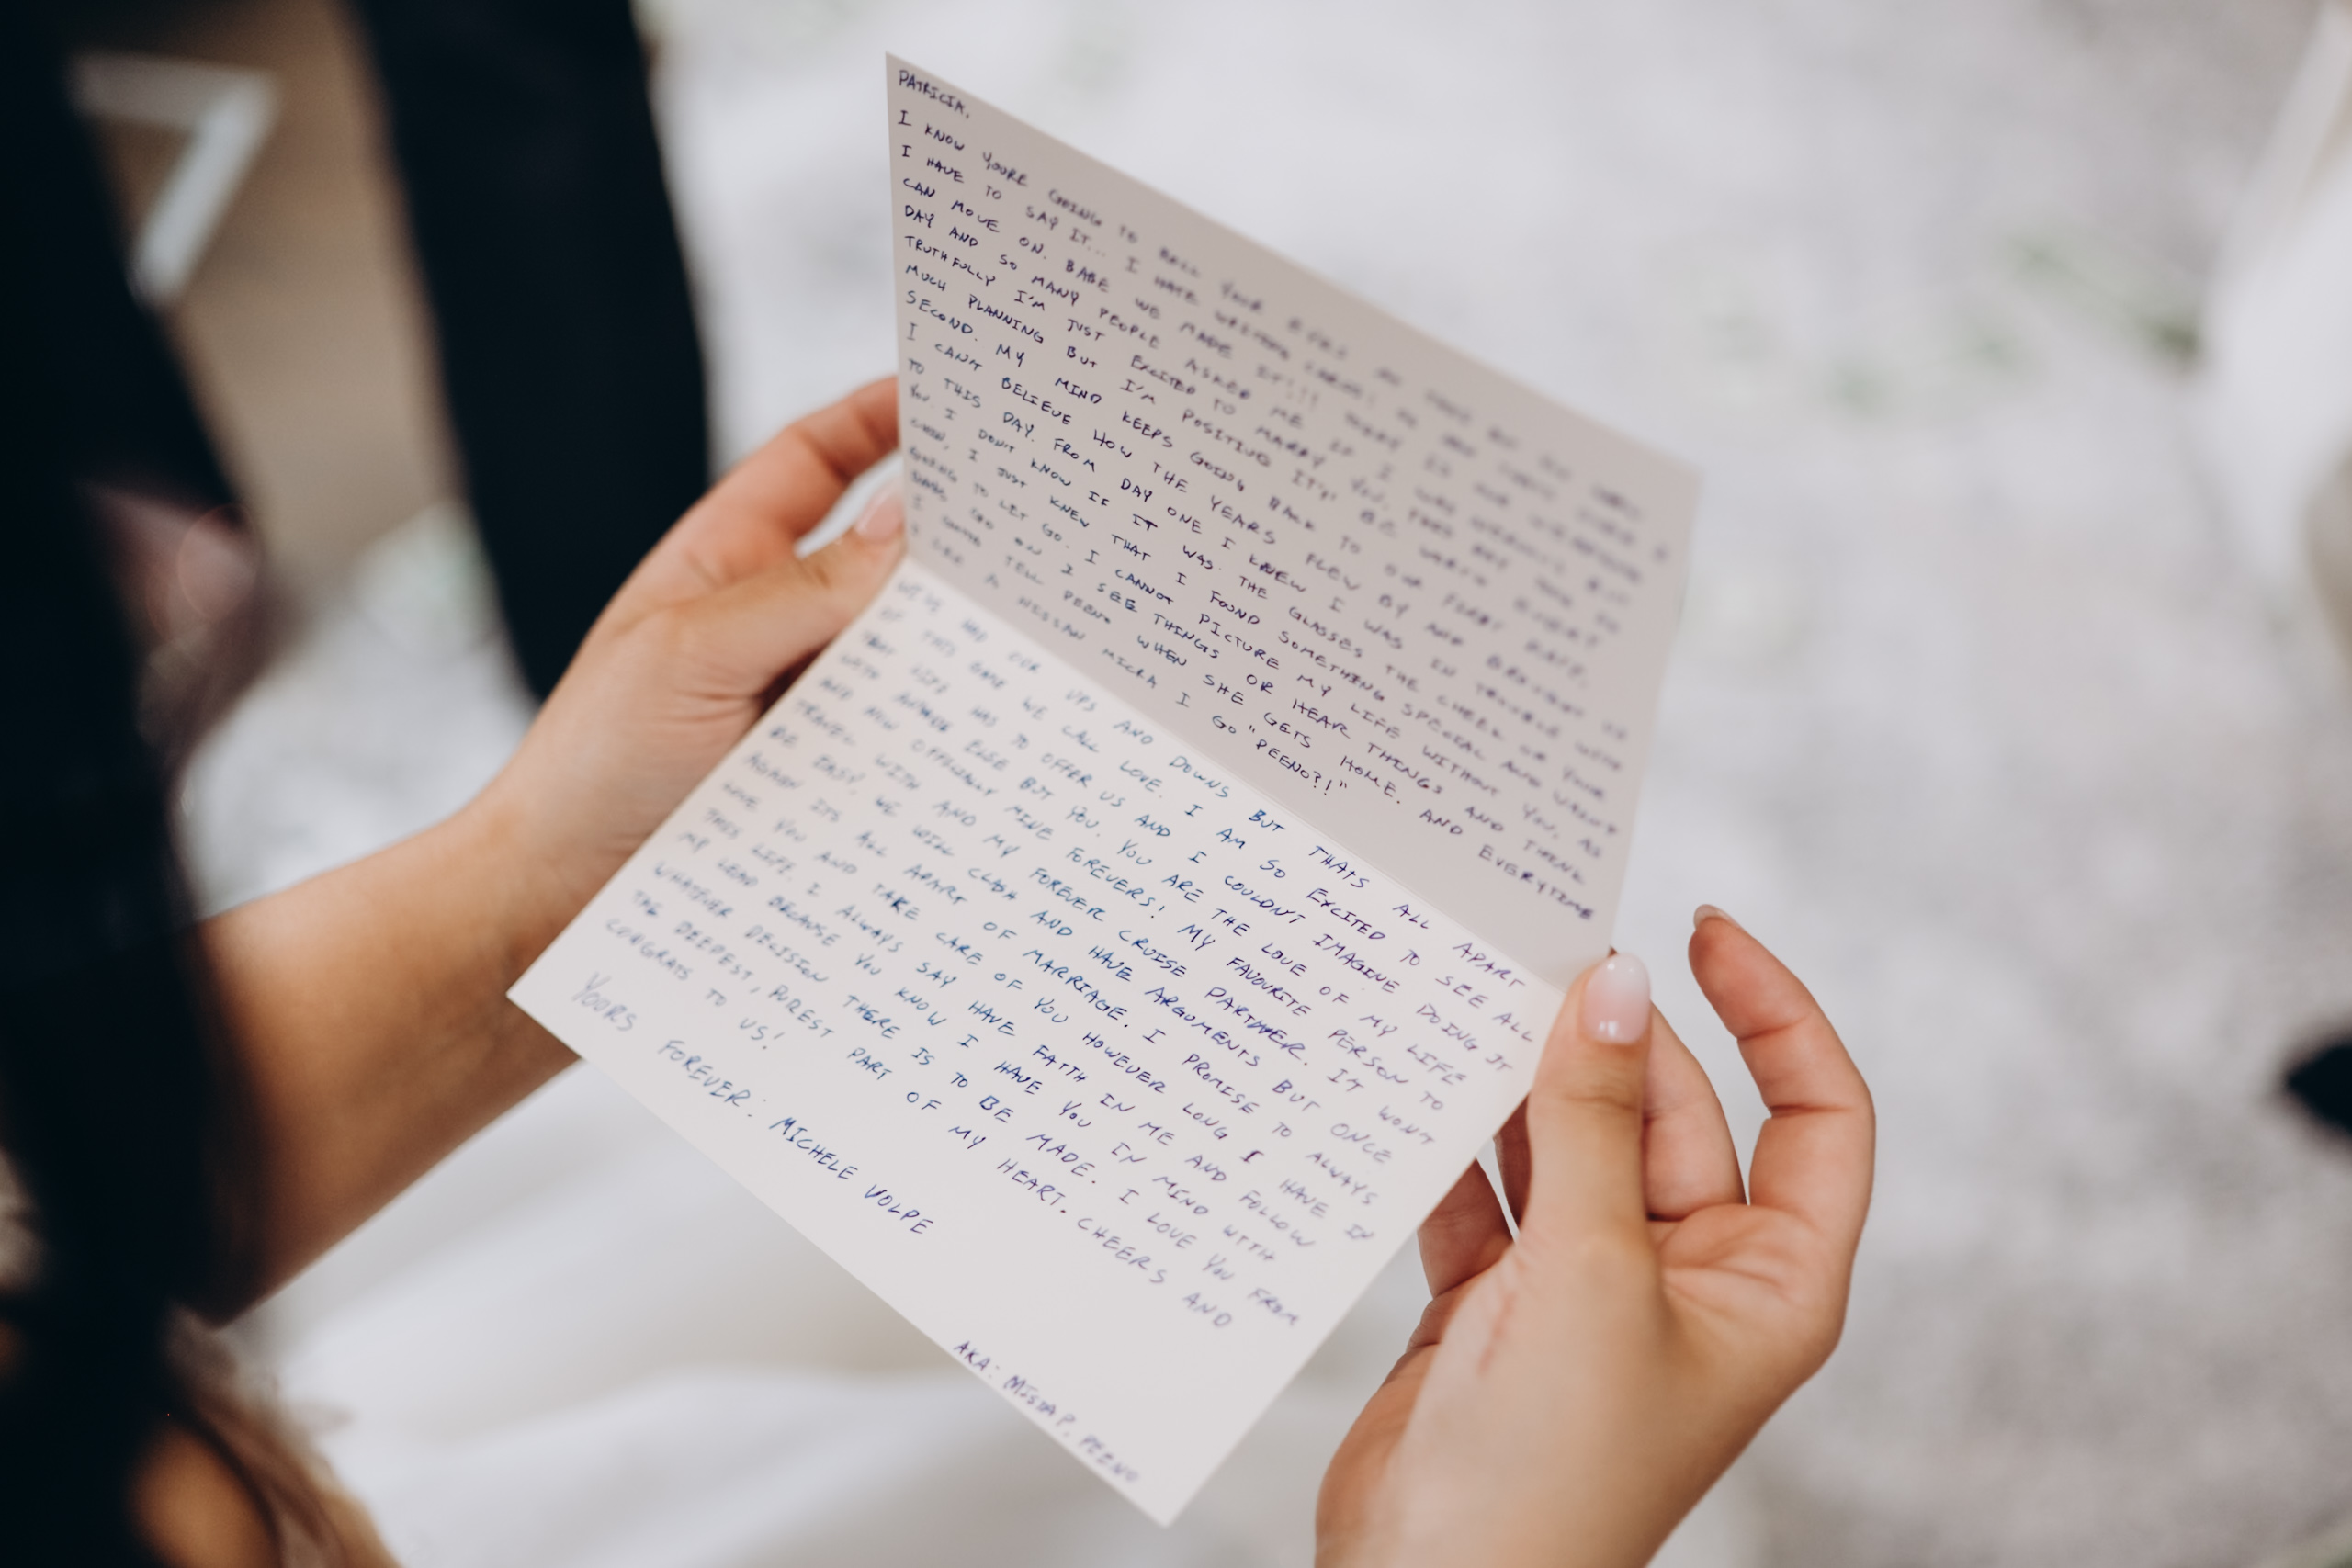 PATRICIA,
I KNOW YOURE GOING TO ROLL YOUR EYES
I HAVE TO SAY IT... I HATE WRITING CARDS!
CAN MOVE ON. BABE WE MADE IT!!! TODAY IS OUR WEDDING
DAY AND SO MANY PEOPLE ASKED ME IF I WAS NERVOUS BUT
TRUTHFULLY I'M JUST EXCITED TO MARRY YOU.
MUCH PLANNING BUT I'M POSITIVE IT'LL BE WORTH EVERY
SECOND. MY MIND KEEPS GOING BACK TO OUR FIRST DATE.
I CANT BELIEVE HOW THE YEARS FLEW BY AND BROUGHT US
TO THIS DAY. FROM DAY ONE I KNEW I WAS IN TROUBLE WITH
YOU. I DONT KNOW IF IT WAS THE GLASSES THE CHEEK OR YOUR
CHIN, I JUST KNEW THAT I FOUND SOMETHING SPECIAL AND WASNT
GOING TO LET GO. I CANNOT PICTURE MY LIFE WITHOUT YOU. AS
DAYS GO ON I SEE THINGS OR HEAR THINGS AND THINK
I GOTTA TELL PEENO WHEN SHE GETS HOME. AND EVERYTIME
I SEE A NISSAN MICRA I GO "PEENO?!"
WE'VE HAD OUR UPS AND DOWNS BUT THATS ALL APART
OF THIS GAME WE CALL LOVE. I AM SO EXCITED TO SEE ALL
THAT LIFE HAS TO OFFER US AND I COULDNT IMAGINE DOING IT
WITH ANYONE ELSE BUT YOU. YOU ARE THE LOVE OF MY LIFE
AND NOW OFFICIALLY MINE FOREVERS! MY FAVOURITE PERSON TO
TRAVEL WITH AND MY FOREVER CRUISE PARTNER. IT WONT
BE EASY, WE WILL CLASH AND HAVE ARGUMENTS BUT ONCE
AGAIN ITS ALL APART OF MARRIAGE. I PROMISE TO ALWAYS
LOVE YOU AND TAKE CARE OF YOU HOWEVER LONG I HAVE IN
THIS LIFE. I ALWAYS SAY HAVE FAITH IN ME AND FOLLOW
MY LEAD BECAUSE YOU KNOW I HAVE YOU IN MIND WITH
WHATEVER DECISION THERE IS TO BE MADE. I LOVE YOU FROM
THE DEEPEST, PUREST PART OF MY HEART. CHEERS AND
CONGRATS TO US!
YOURS FOREVER: MICHELE VOLPE
AKA: MISTA P. PEENO